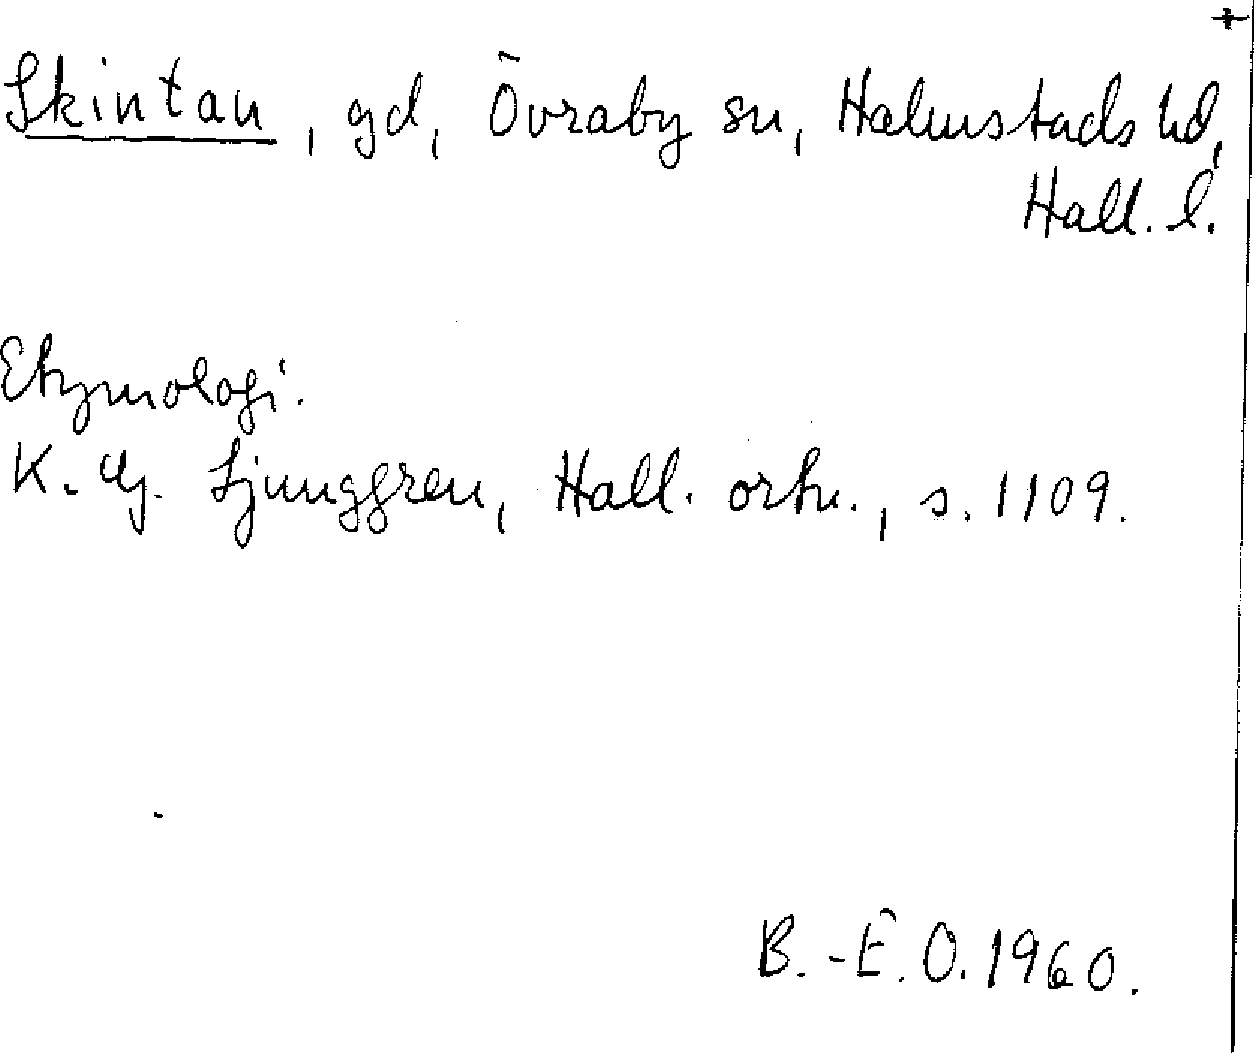 Skintan, gd, Övraby sn, Halmstads hd,
Hall. l.
Etymologi.
K. G. Ljunggren, Hall. ortn., s. 1109.
B.-E. O. 1960.